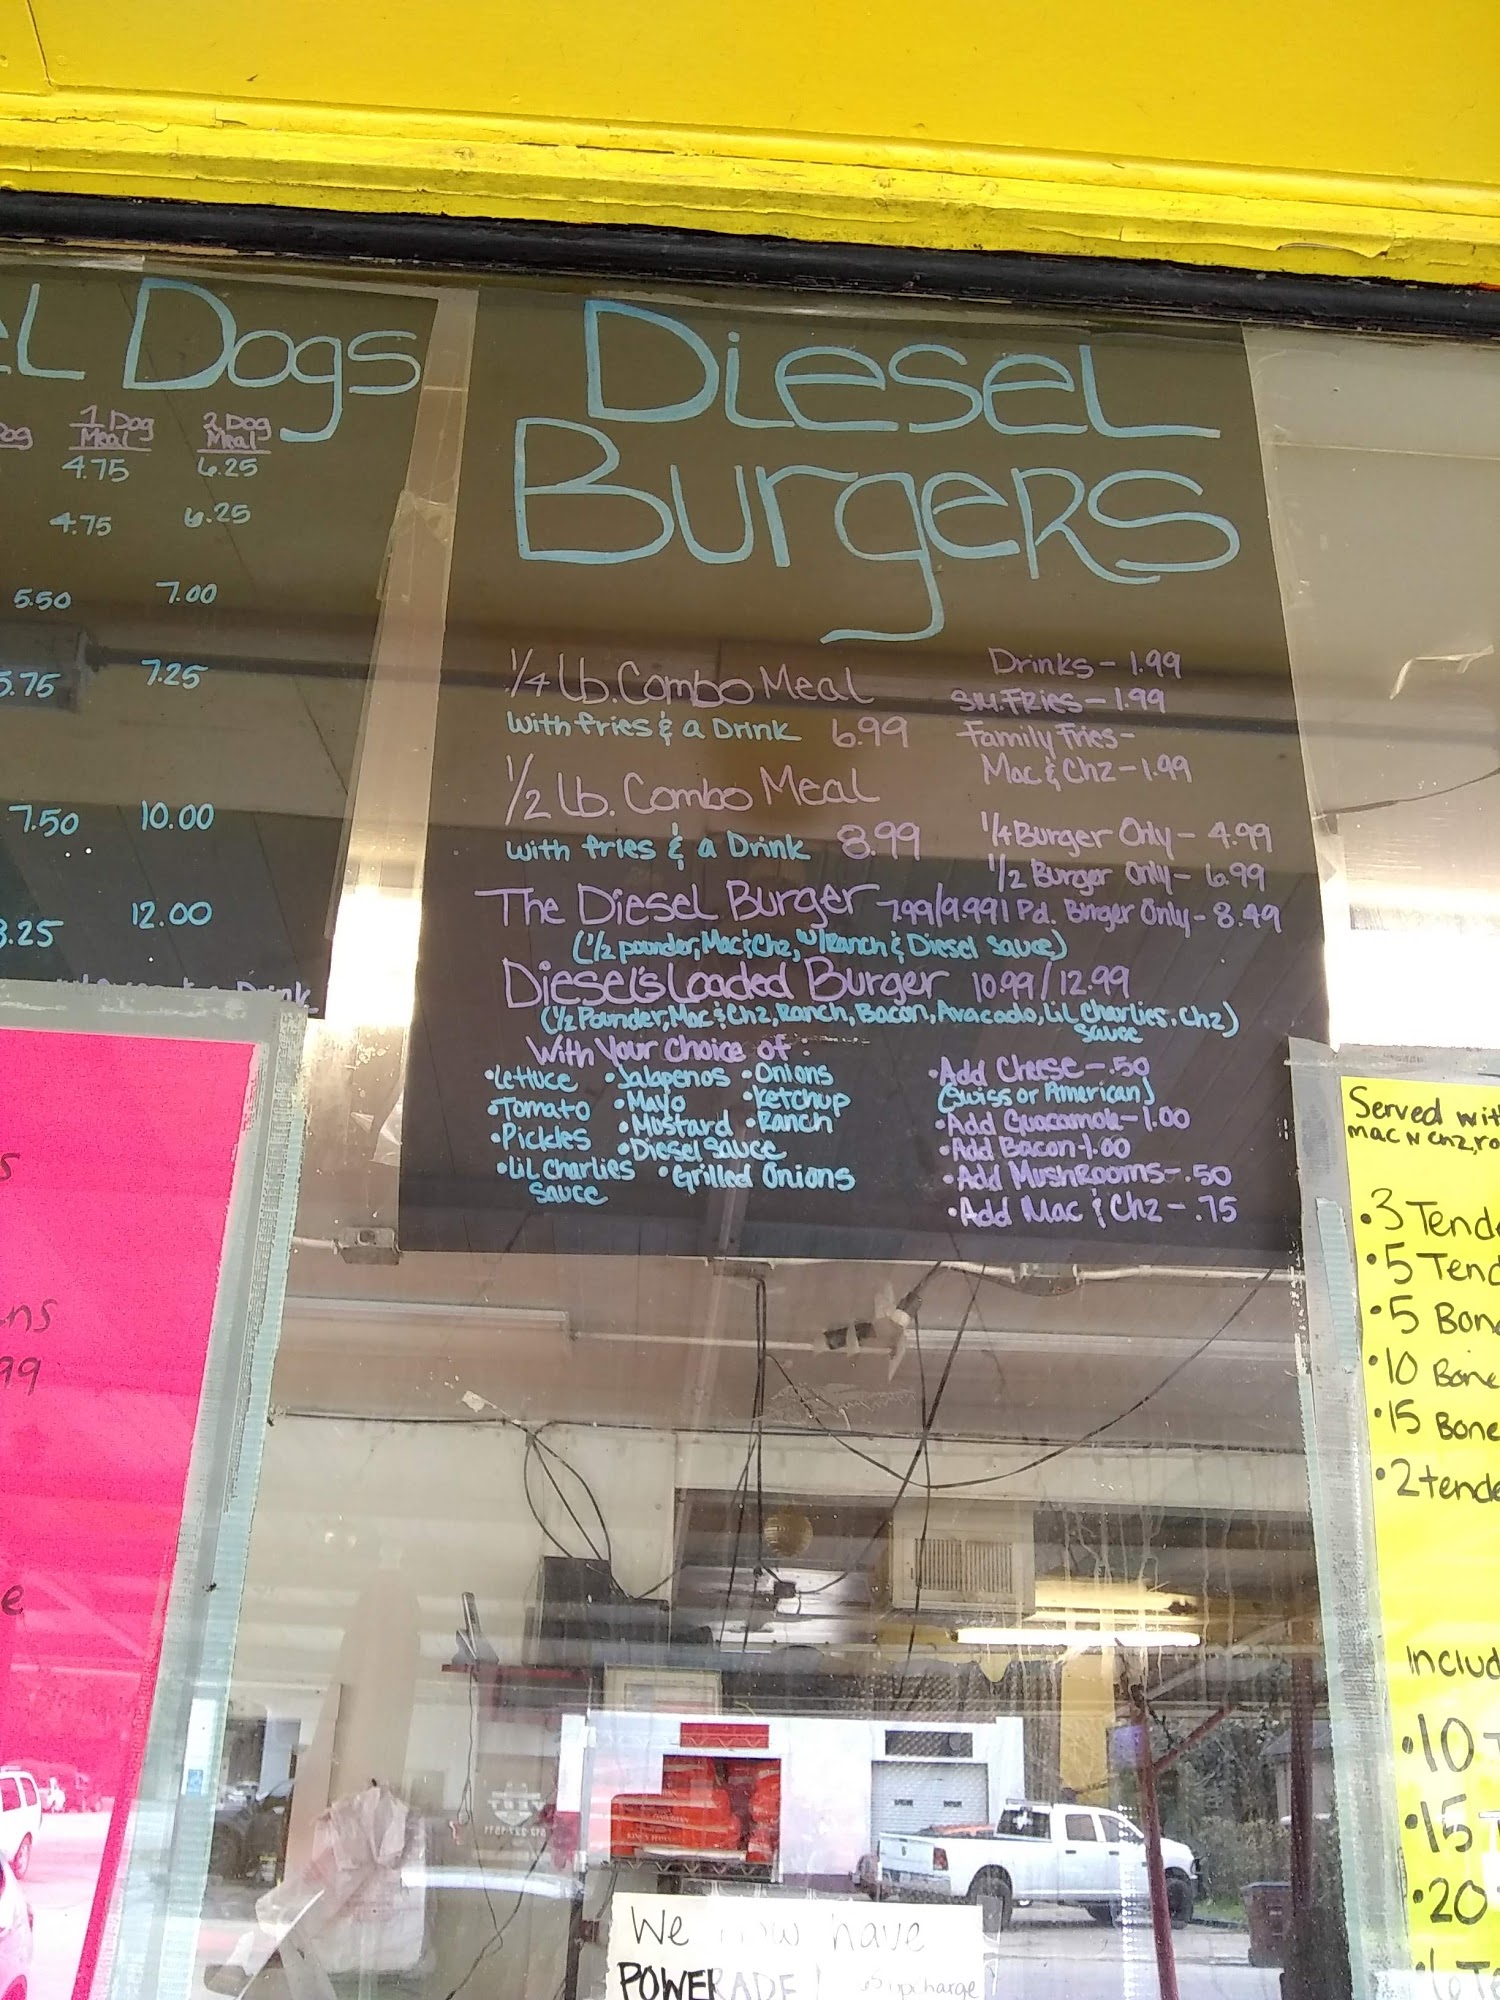 L Dogs
Dog
1 Dog
Meal
2 Dog
Meal
4.75 6.25
4.75 6.25
5.50 7.00
5.75 7.25
7.50 10.00
8.25 12.00
Drink
Diesel
Burgers
1/4 lb. Combo Meal
with fries & a Drink 6.99
1/2 lb. Combo Meal
with fries & a Drink 8.99
Drinks - 1.99
SM. Fries - 1.99
Family Fries -
Mac & Chz - 1.99
1/4 Burger Only - 4.99
1/2 Burger Only - 6.99
1 Pd. Burger Only - 8.49
The Diesel Burger 7.99/9.99
(1/2 pounder, Mac & Chz, w/Ranch & Diesel Sauce)
Diesel's Loaded Burger 10.99/12.99
(1/2 Pounder, Mac & Chz, Ranch, Bacon, Avacado, Lil Charlies, Chz)
Sauce
With Your Choice of:
•Lettuce •Jalapenos •Onions
•Tomato •Mayo •Ketchup
•Pickles •Mustard •Ranch
•Diesel Sauce
•Lil Charlies •Grilled Onions
Sauce
•Add Cheese - .50
(Swiss or American)
•Add Guacamole - 1.00
•Add Bacon - 1.00
•Add Mushrooms - .50
•Add Mac & Chz - .75
Served with
mac n chz, ro
•3 Tende
•5 Tend
•5 Bon
•10 Bone
•15 Bone
•2 tende
Includ
•10
•15
•20
ns
99
e
We now have
POWERADE
upcharge